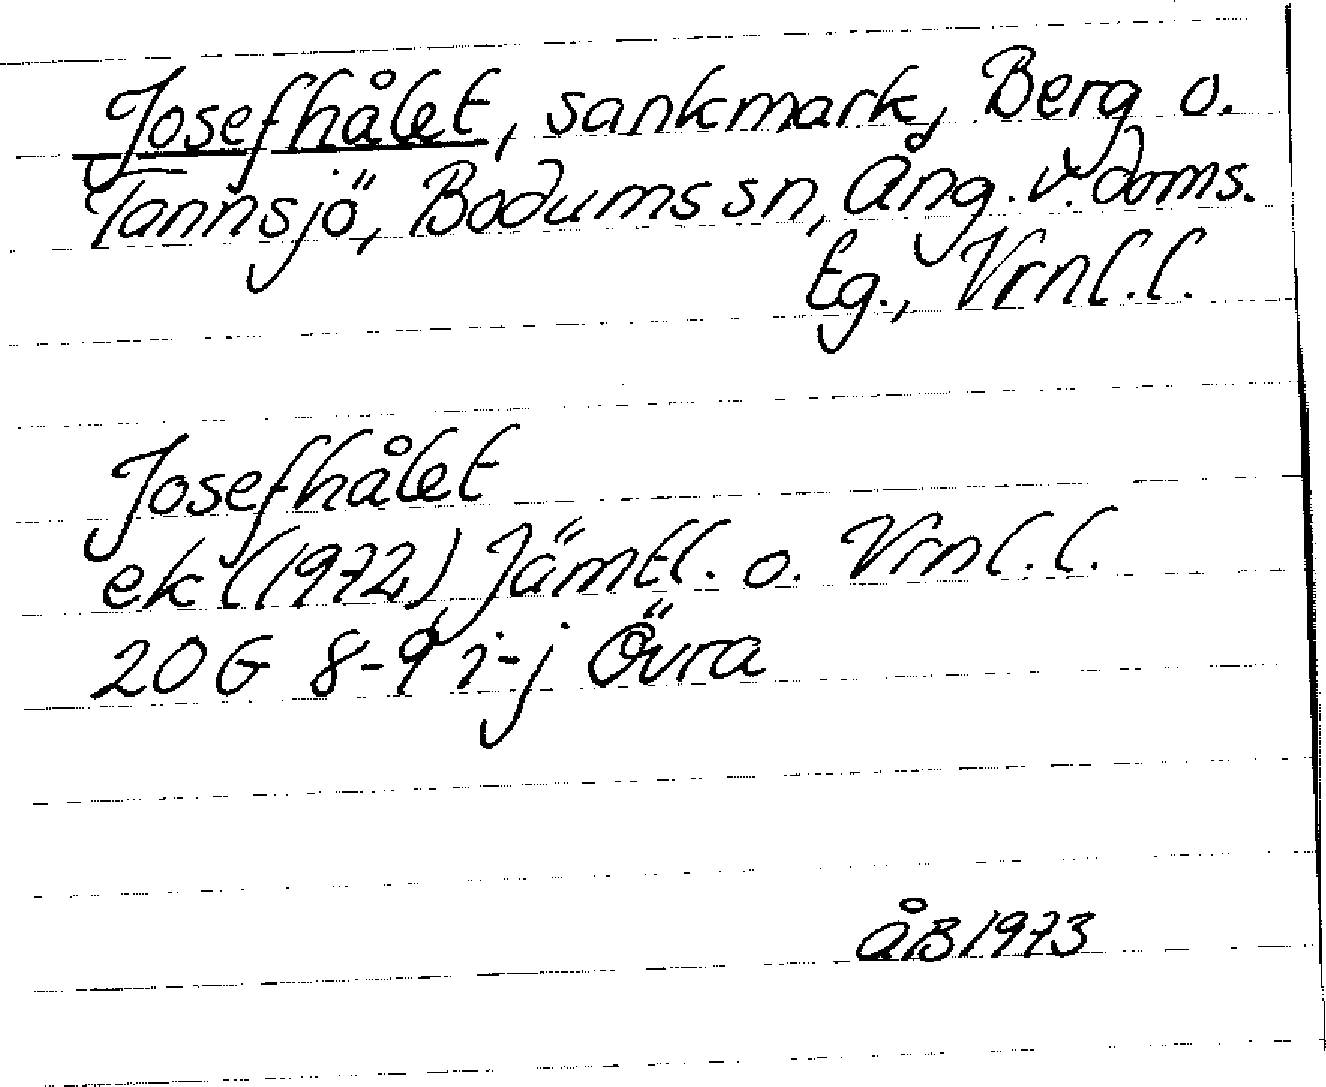 Josefhålet, sankmark, Berg o.
Tannsjö, Bodums sn, Ång. v. doms.
tg., Vrnl. l.
Josefhålet
ek (1972) Jämtl. o. Vrnl. l.
20 G 8-9 i-j Övra
åB 1973